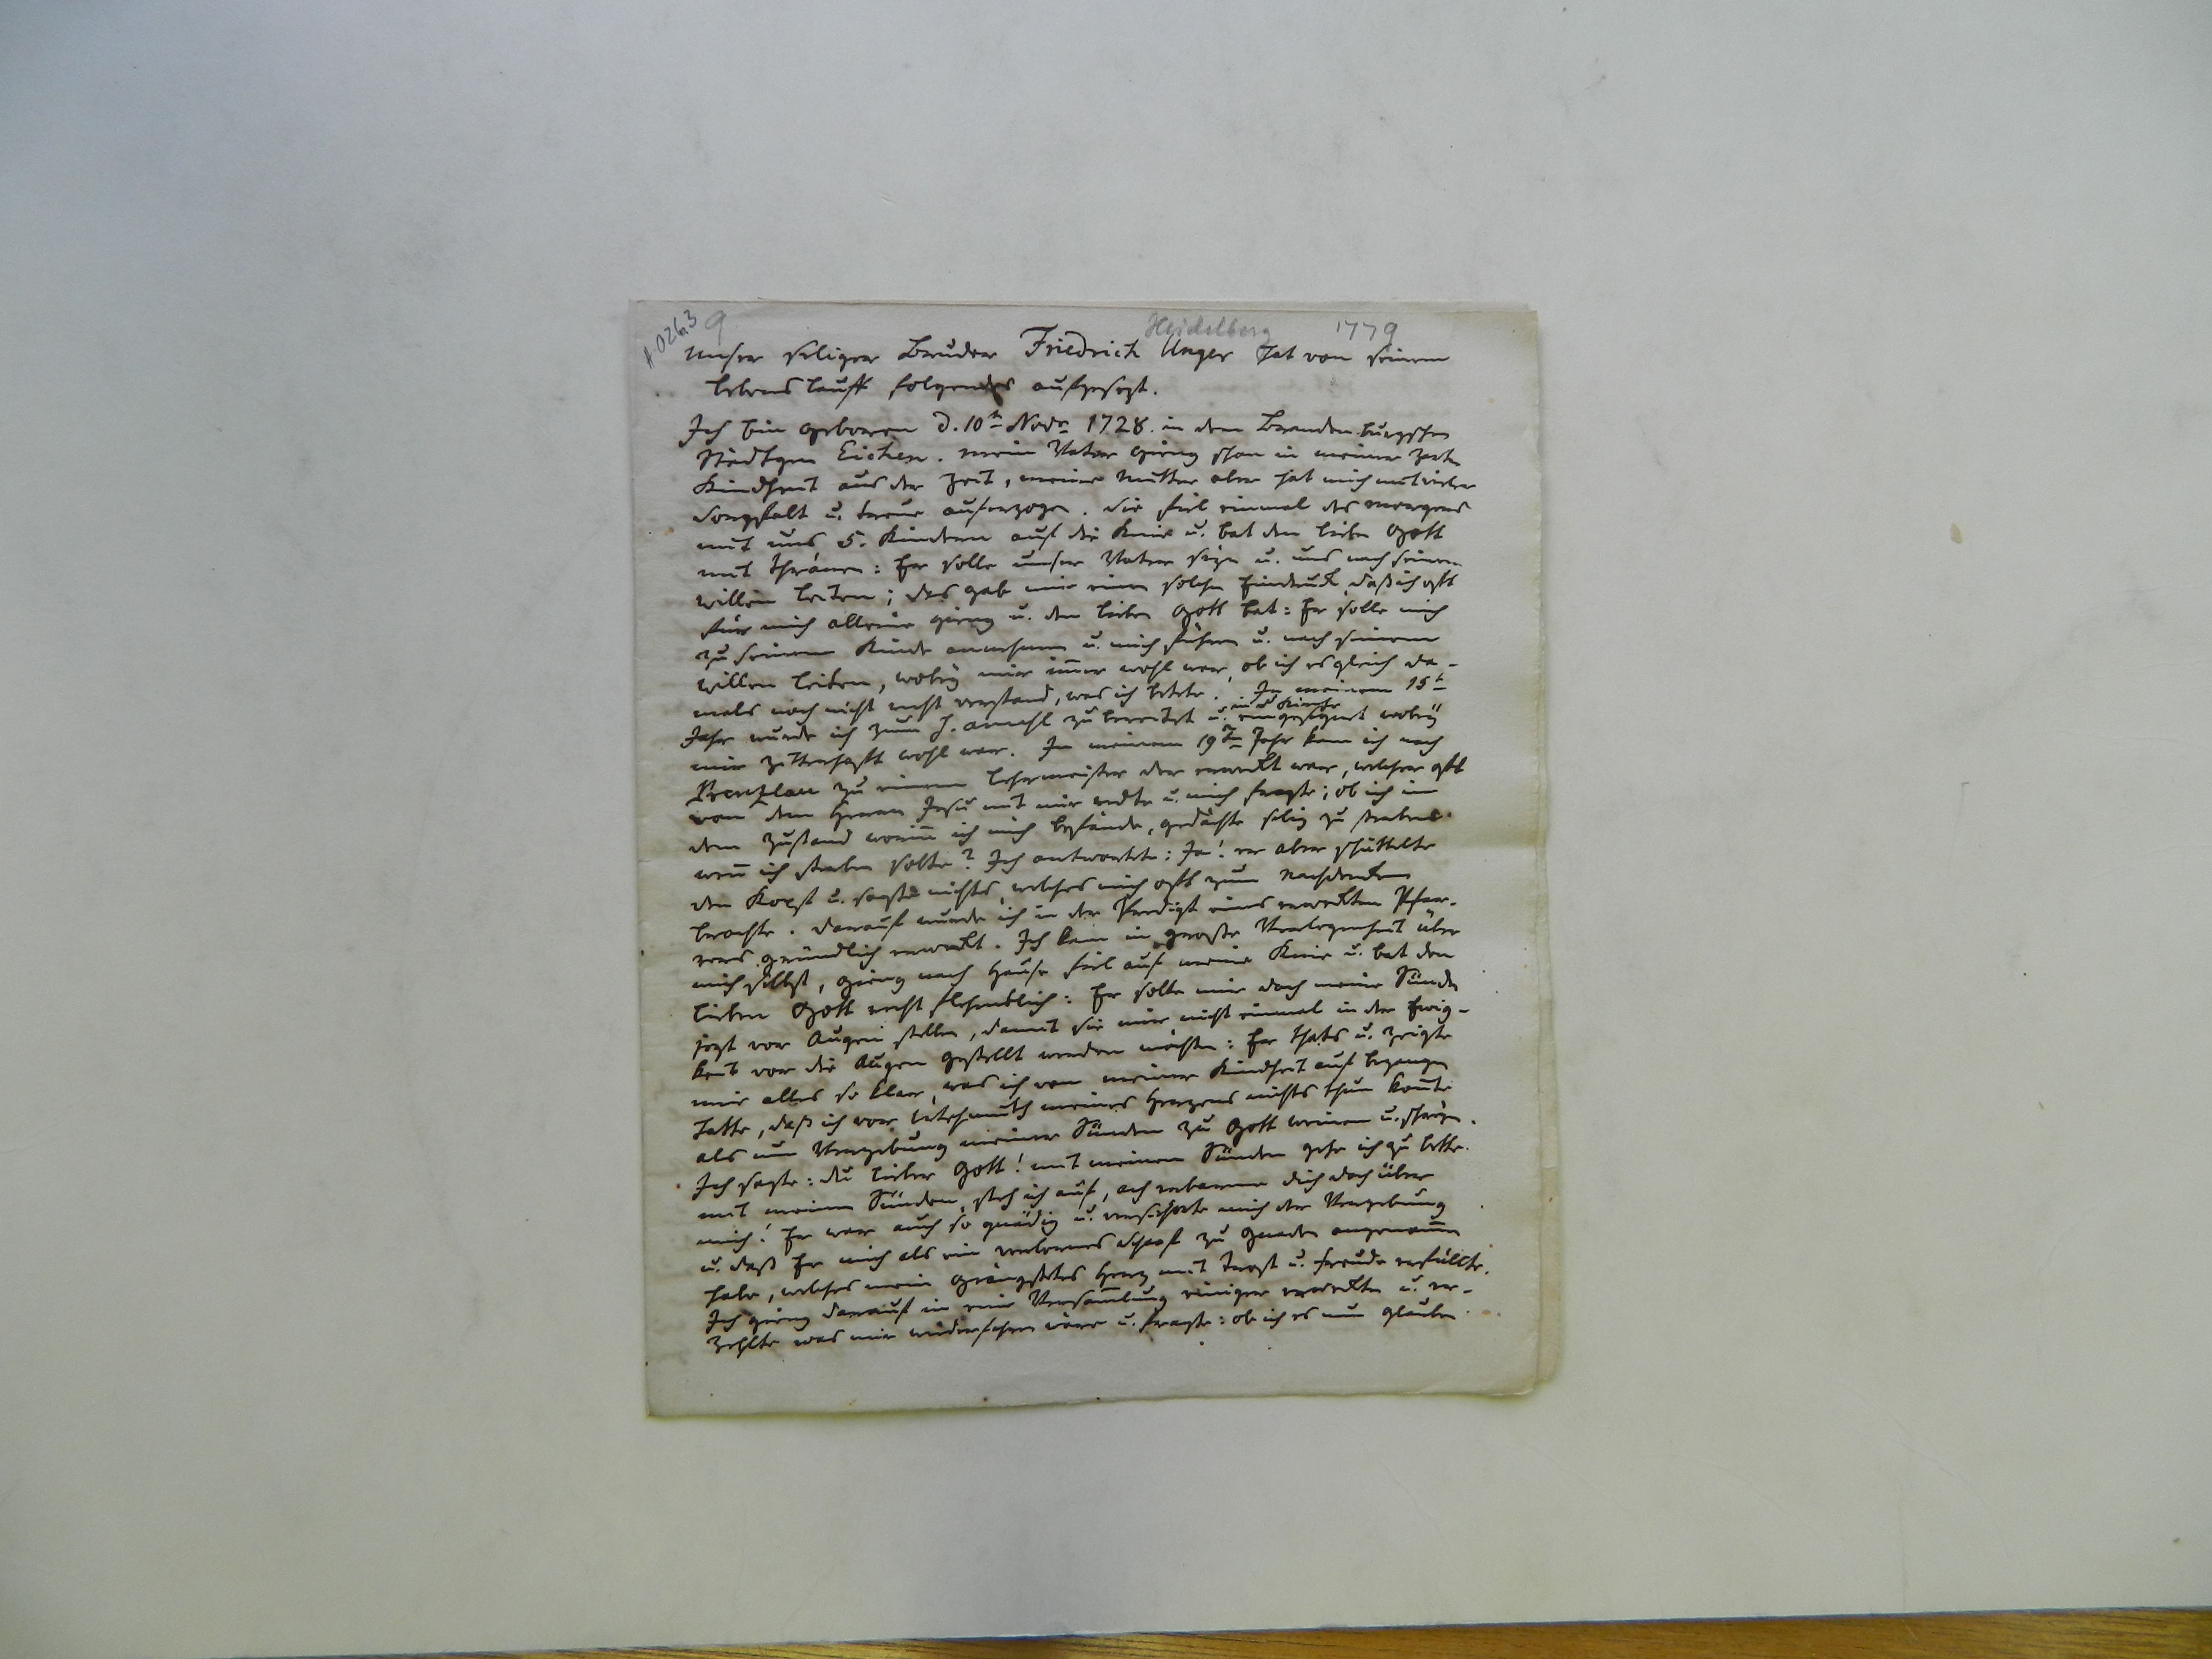 A.0263
9
Heidelberg 1779
Unser seliger Bruder Friedrich Unger hat von seinem
Lebenslauff folgendes aufgesezt.
Ich bin geboren d. 10t Novr 1728. in dem Brandenburgschen
Städtgen Eichen. mein Vater gieng schon in meiner zarten
Kindheit aus der Zeit, meine Mutter aber hat mich mit vieler
Sorgfalt u. treue auferzogen. Sie fiel einmal des morgens
mit uns 5. Kindern auf die Knie u. bat den lieben Gott
mit thränen: Er solle unser Vater seyn u. uns nach seinem
willen leiten; das gab mir einen solchen Eindruck, daß ich oft
für mich alleine gieng u. den lieben Gott bat: Er solle mich
zu seinem Kinde annehmen u. mich führen u. nach seinem
willen leiten, wobey mir im̄er wohl war, ob ich es gleich da-
mals noch nicht recht verstand, was ich betete. In meinem 15t
Jahr wurde ich zum H. Abendmahl zubereitet u. in d Kirche eingesegnet wobey
mir zitterhafft wohl war. In meinem 19ten Jahr kam ich nach
Prenzlau zu einem Lehrmeister der erweckt war, welcher oft
von dem Herrn Jesu mit mir redte u. mich fragte; ob ich in
dem Zustand worin̄ ich mich befände, gedächte selig zu sterben
wen̄ ich sterben solte? Ich antwortete: Ja! er aber schüttelte
den Kopf u. sagte nichts, welches mich oft zum Nachdencken
brachte. Darauf wurde ich in der Predigt eines erweckten Pfar-
rers gründlich erweckt. Ich kam in grosse Verlegenheit über
mich selbst, gieng nach Hause fiel auf meine Knie u. bat den
lieben Gott recht flehendlich: Er solte mir doch meine Sünden
jezt vor Augen stellen, damit sie mir nicht einmal in der Ewig-
keit vor die Augen gestellt werden möchten: Er thats u. zeigte
mir alles so klar, was ich von meiner Kindheit auf begangen
hatte, daß ich vor wehmuth meines Herzens nichts thun konte
als um Vergebung meiner Sünden zu Gott weinen u. schreyen.
Ich sagte: du lieber Gott! mit meinen Sünden gehe ich zu bette.
mit meinen Sünden steh ich auf, ach erbarme dich doch über
mich! Er war auch so gnädig u. versicherte mich der Vergebung
u. daß Er mich als ein verlornes Schaaf zu Gnaden angenom̄en
habe, welches mein geängstetes Herz mit trost u. freude erfüllte.
Ich gieng darauf in eine Versam̄lung einiger erweckten u. er-
zehlte was mir wiederfahren wäre u. fragte: ob ich es nun glauben